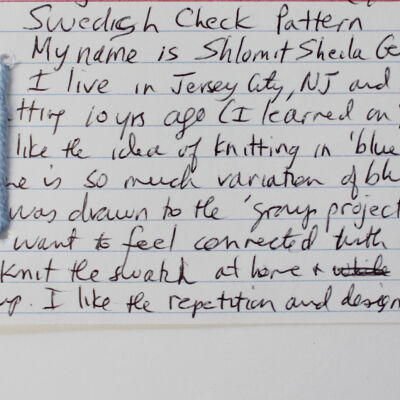 Swedish Check Pattern
My name is Shlomit Sheila Ge
I live in Jersey City, NJ and
tting 10 yrs ago (I learned on
like the idea of knitting in 'blue
e is so much variation of blu
was drawn to the 'group project
want to feel connected with
Knit the swatch at home + while
up. I like the repetition and design